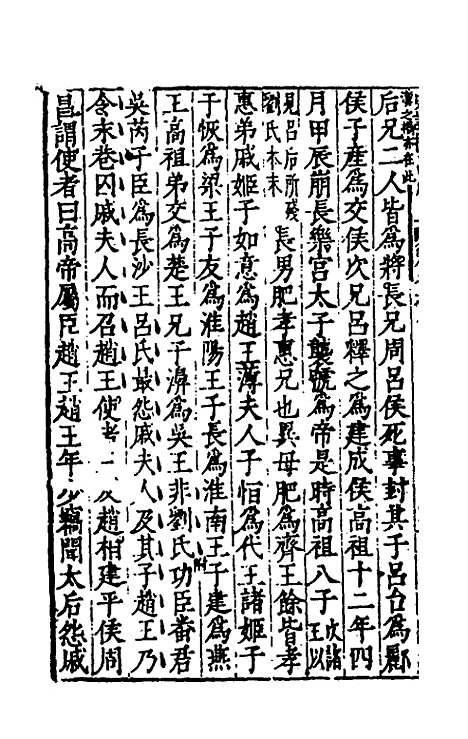 后兄二人皆爲將長兄周呂侯死事封其子呂台爲酈
侯子產爲交侯次兄呂釋之爲建成侯高祖十二年四
月甲辰崩長樂宮太子襲號爲帝是時高祖八子次諸王以
見呂后所殘劉氏本末長男肥孝惠兄也異母肥爲齊王餘皆孝
惠弟戚姬子如意爲趙王薄夫人子恒爲代王諸姬子
子恢爲梁王子友爲淮陽王子長爲淮南王子建爲燕
王高祖弟交爲楚王兄子濞爲吳王非劉氏功臣番君
吳芮子臣爲長沙王呂氏最怨戚夫人及其子趙王乃
令永巷囚戚夫人而召趙王使者 反趙相建平侯周
昌謂使者曰高帝屬臣趙王趙王年少竊聞太后怨戚